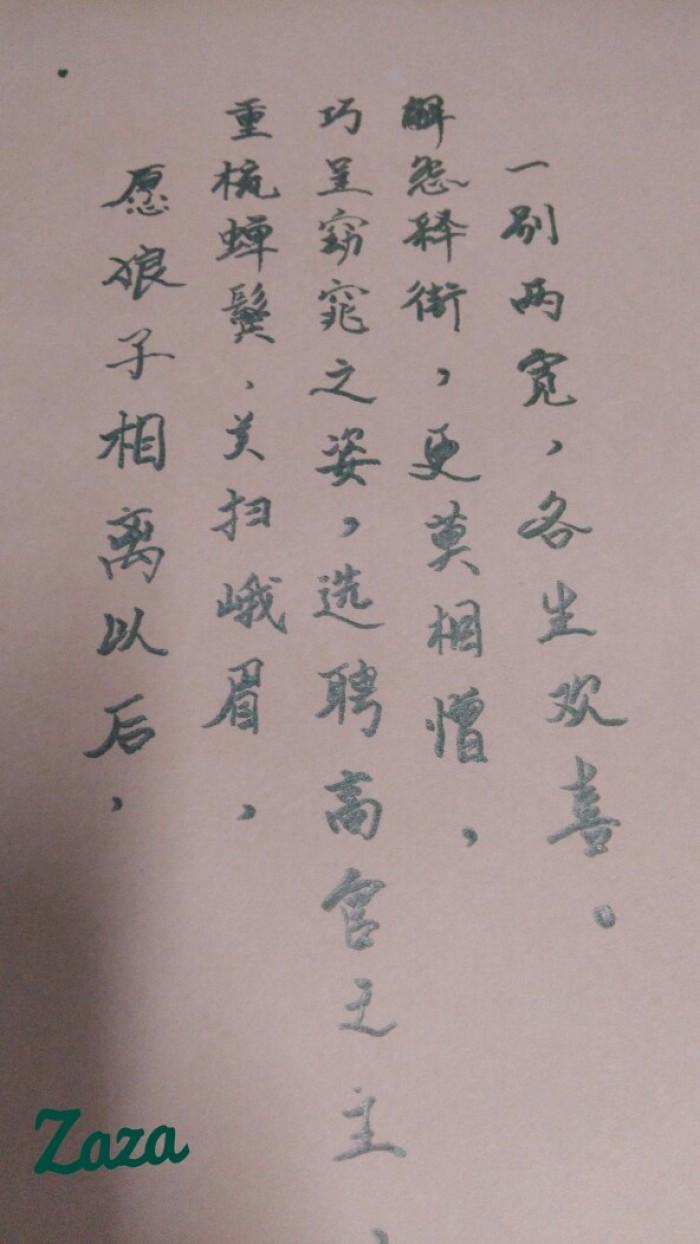 愿娘子相离以后，
重梳蝉鬓，美扫峨眉，
巧呈窈窕之姿，选聘高官之主，
解怨释衔，更莫相憎，
一别两宽，各生欢喜。
Zaza